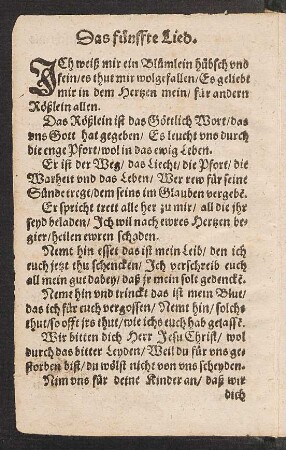 Das fünffte Lied.
ICh weiß mir ein Blümlein hübsch vnd
fein/es thut mir wolgefallen/Es geliebt
mir in dem Hertzen mein/für andern
Rößlein allen.
Das Rößlein ist das Göttlich Wort/das
vns Gott hat gegeben/Es leucht vns durch
die enge Pfort/wol in das ewig Leben.
Er ist der Weg/das Liecht/die Pfort/die
Warheit vnd das Leben/Wer rew für seine
Sünde tregt/dem seins im Glauben vergebē.
Er spricht trett alle her zu mir/all die jhr
seyd beladen/Ich wil nach ewres Hertzen be-
gier/heilen ewren schaden.
Nemt hin esset das ist mein Leib/den ich
euch jetzt thu schencken/Ich verschreib euch
all mein gut dabey/daß jr mein solt gedenckē.
Nemt hin vnd trinckt das ist mein Blut/
das ich für euch vergossen/Nemt hin/solchs
thut/so offt jrs thut/wie ichs euch hab gelassē.
Wir bitten dich Herr Jesu Christ/wol
durch das bitter Leyden/Weil du für vns ge-
storben bist/du wölst nicht von vns scheyden.
Nim vns für deine Kinder an/daß wir
dich